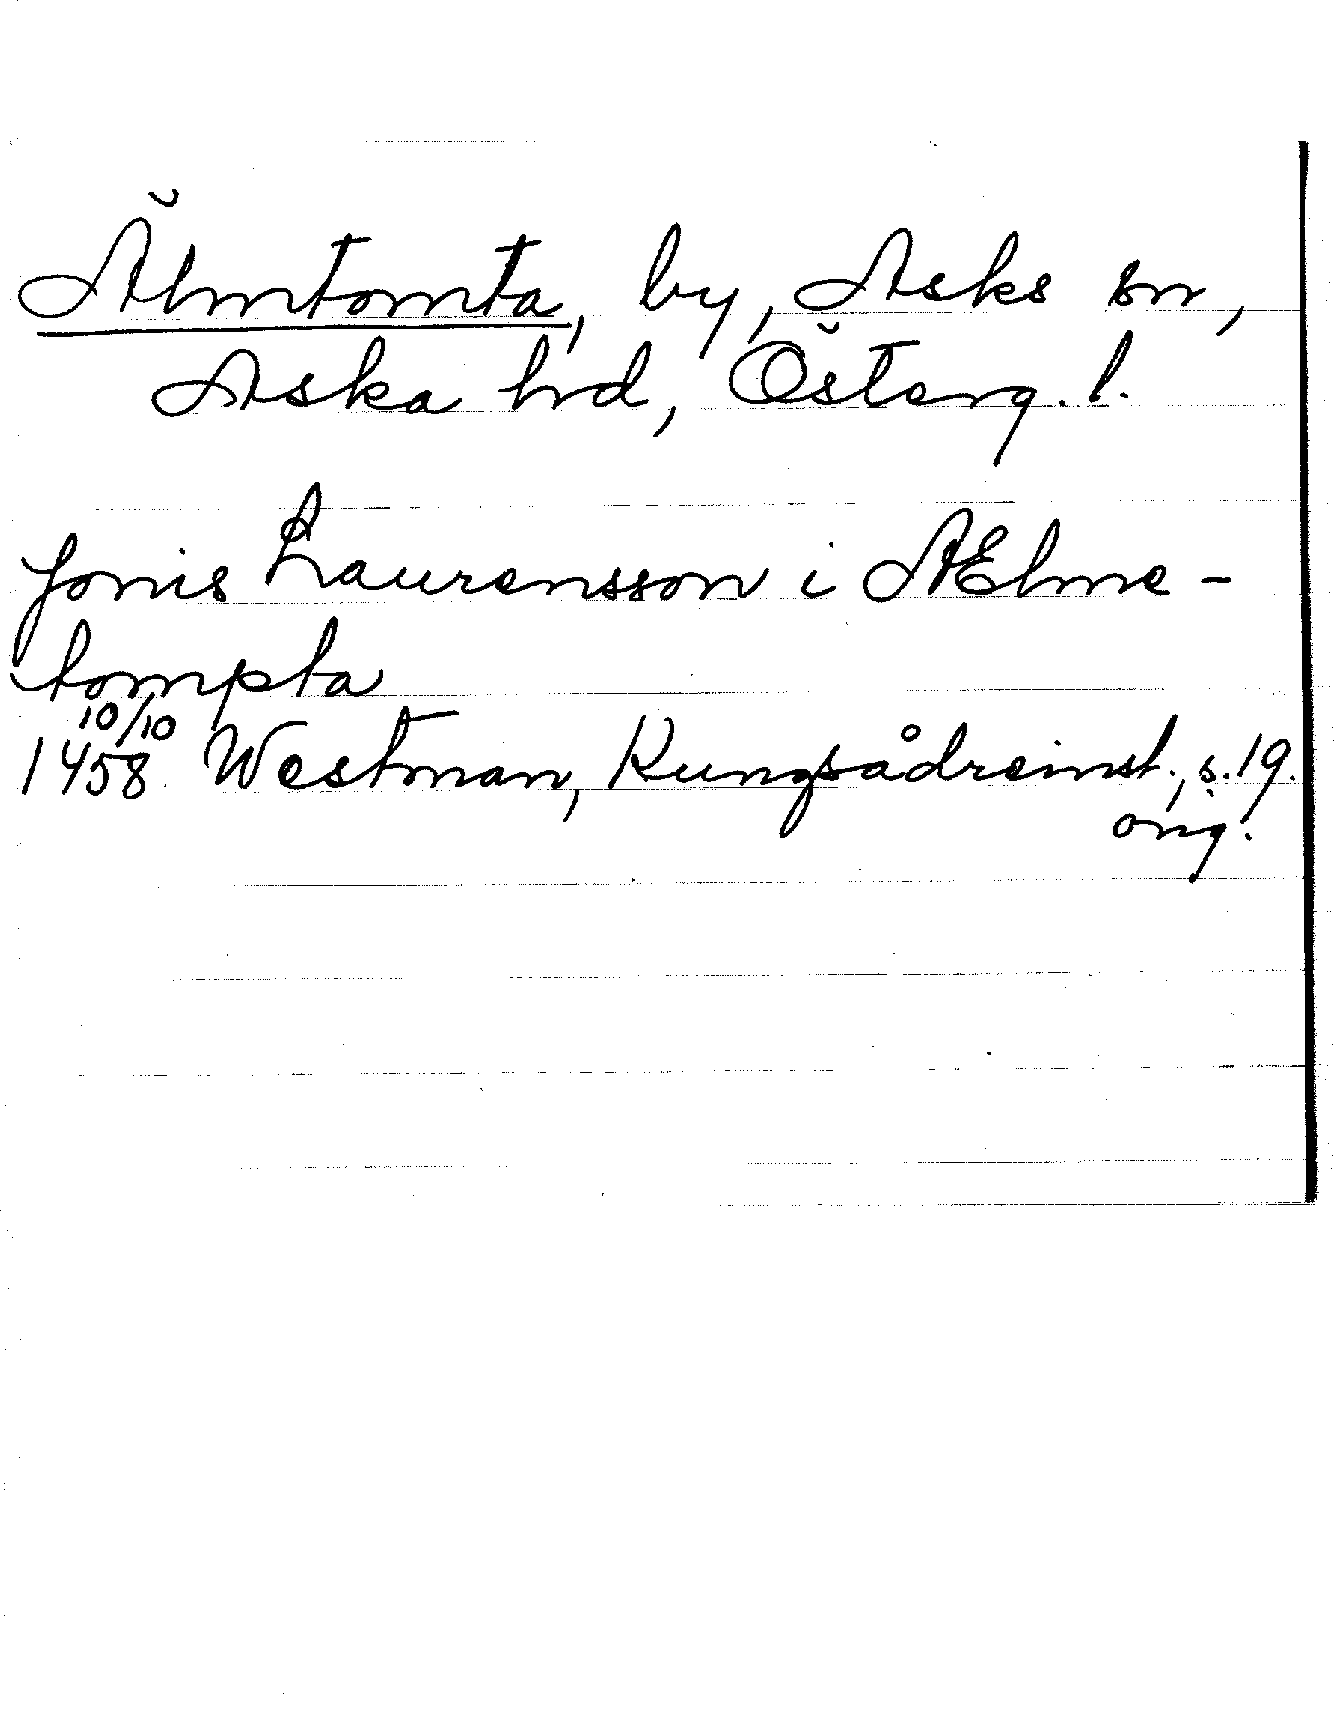 Älmtomta, by, Asks sn,
Aska hd, Österg. l.
Jonis Laurensson i AElme-
tompta
10/10
1458 Westman, Kungsådreinst., s. 19.
orig.